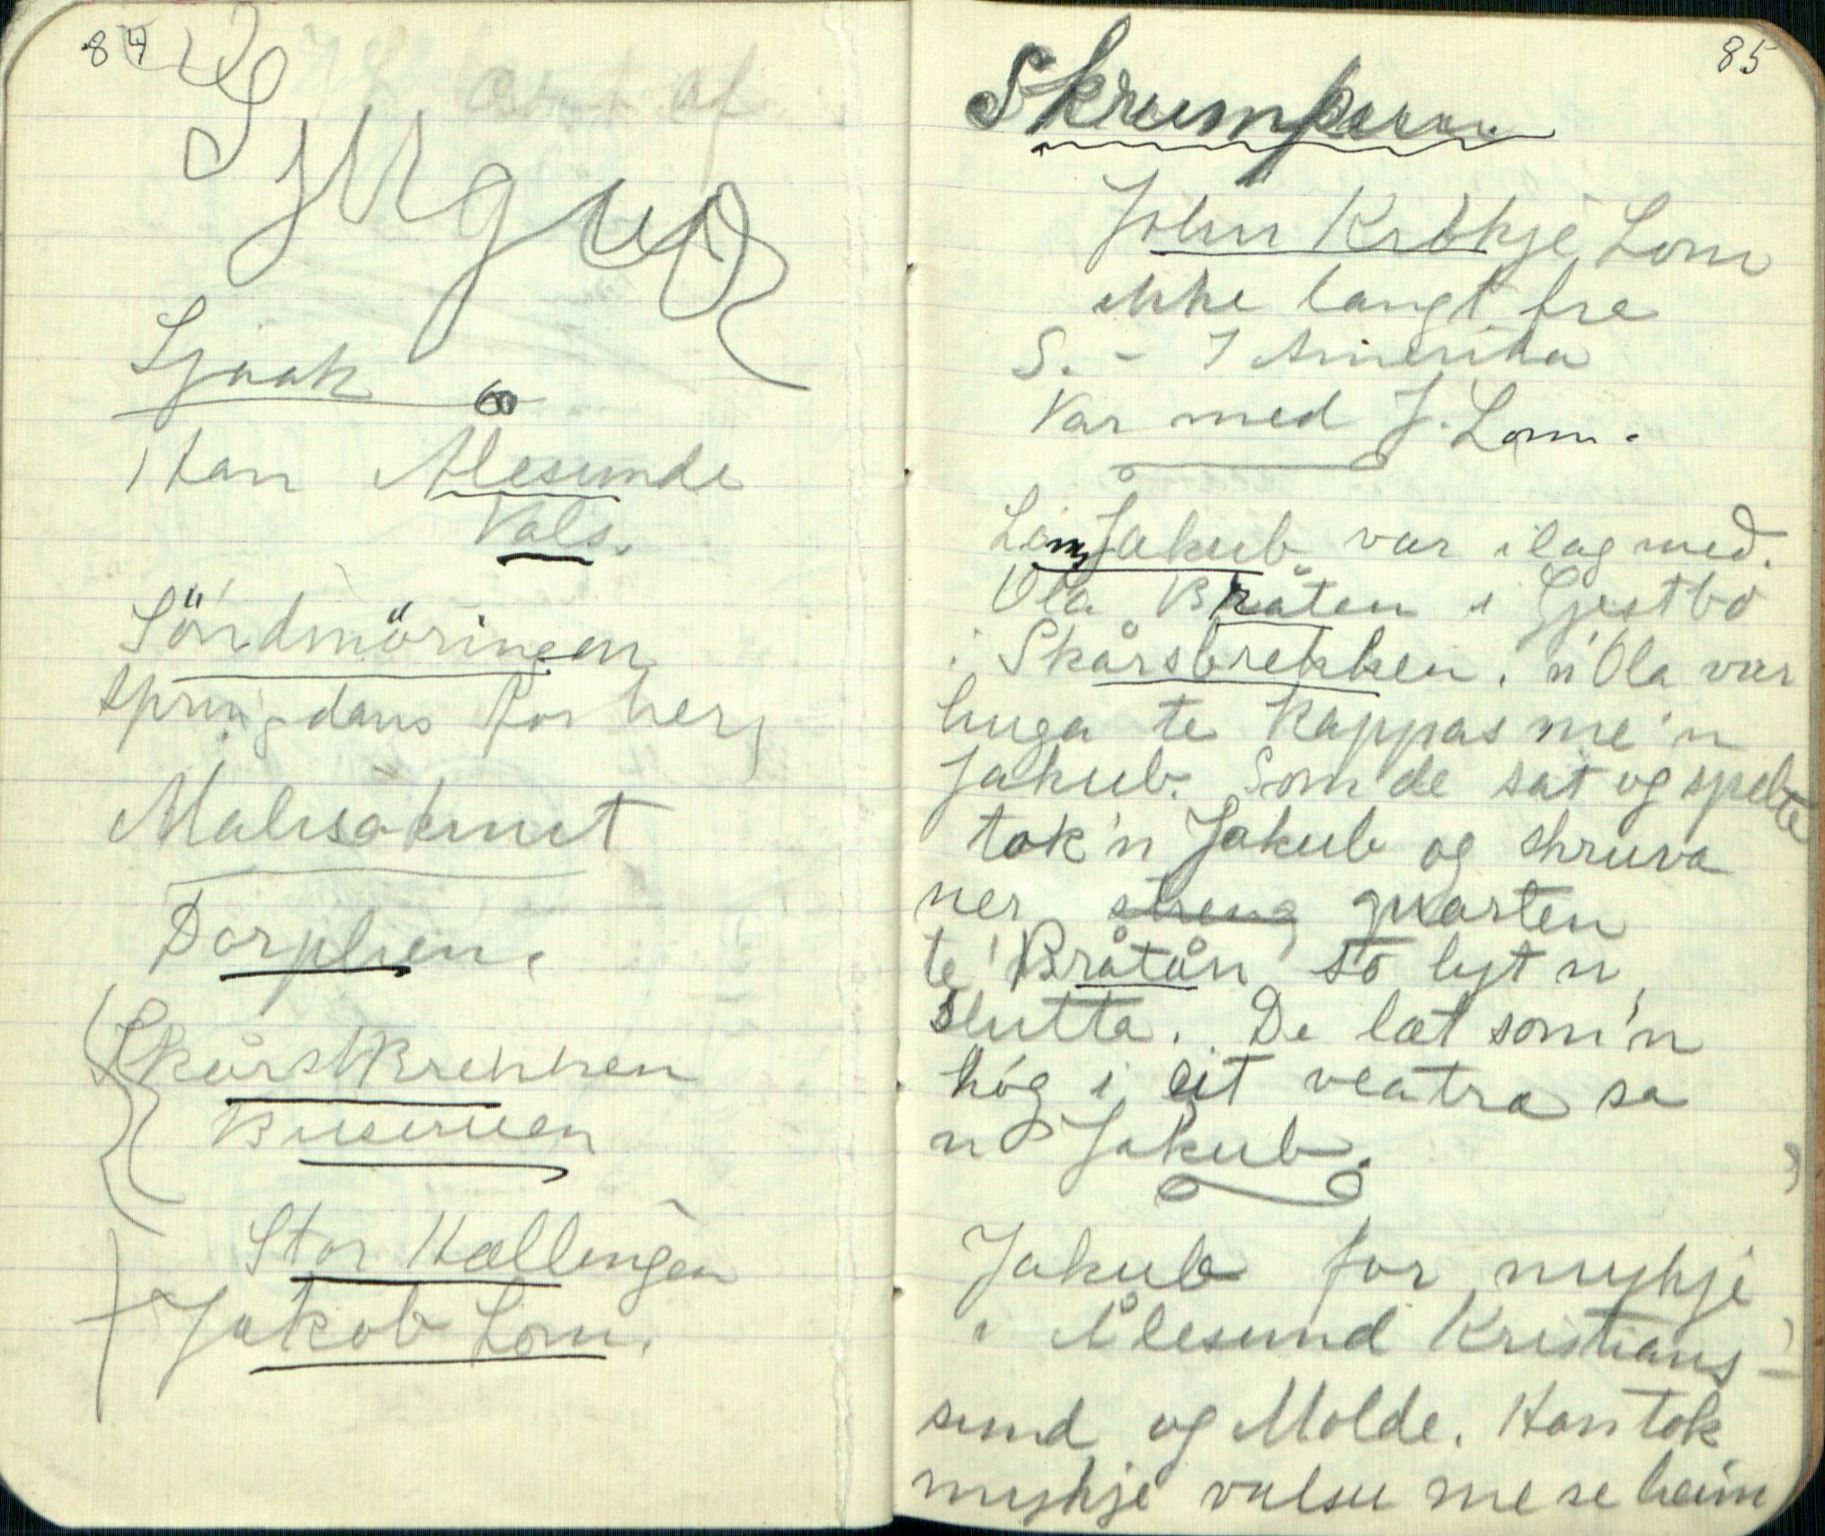 84
Skjaak
Han Alesunde
Vals.
Söndmöringen
springdans
Malisaknut
Dorphen.
SkårsBrekken
Buseruen
Stor Hallingen
Jakob Lom.
85
John Krökje Lom
ikke langt fre
S. - I Amerika
Var med J. Lom.
Lom Jakub var ilag med.
Ola Bråten i Gjestbö
i Skårsbrekken. n'Ola var
huga te kappas me'n
Jakub. Som de sat og spelte
tok'n Jakub og skruva
ner streng qvarten
te' Bråtån so lyt n
slutta. De læt som'n
hög i eit veatra sa
n Jakub.
Jakub for mykje
i Ålesund Kristians-
sund og Molde. Han tok
mykje valsu me se heim